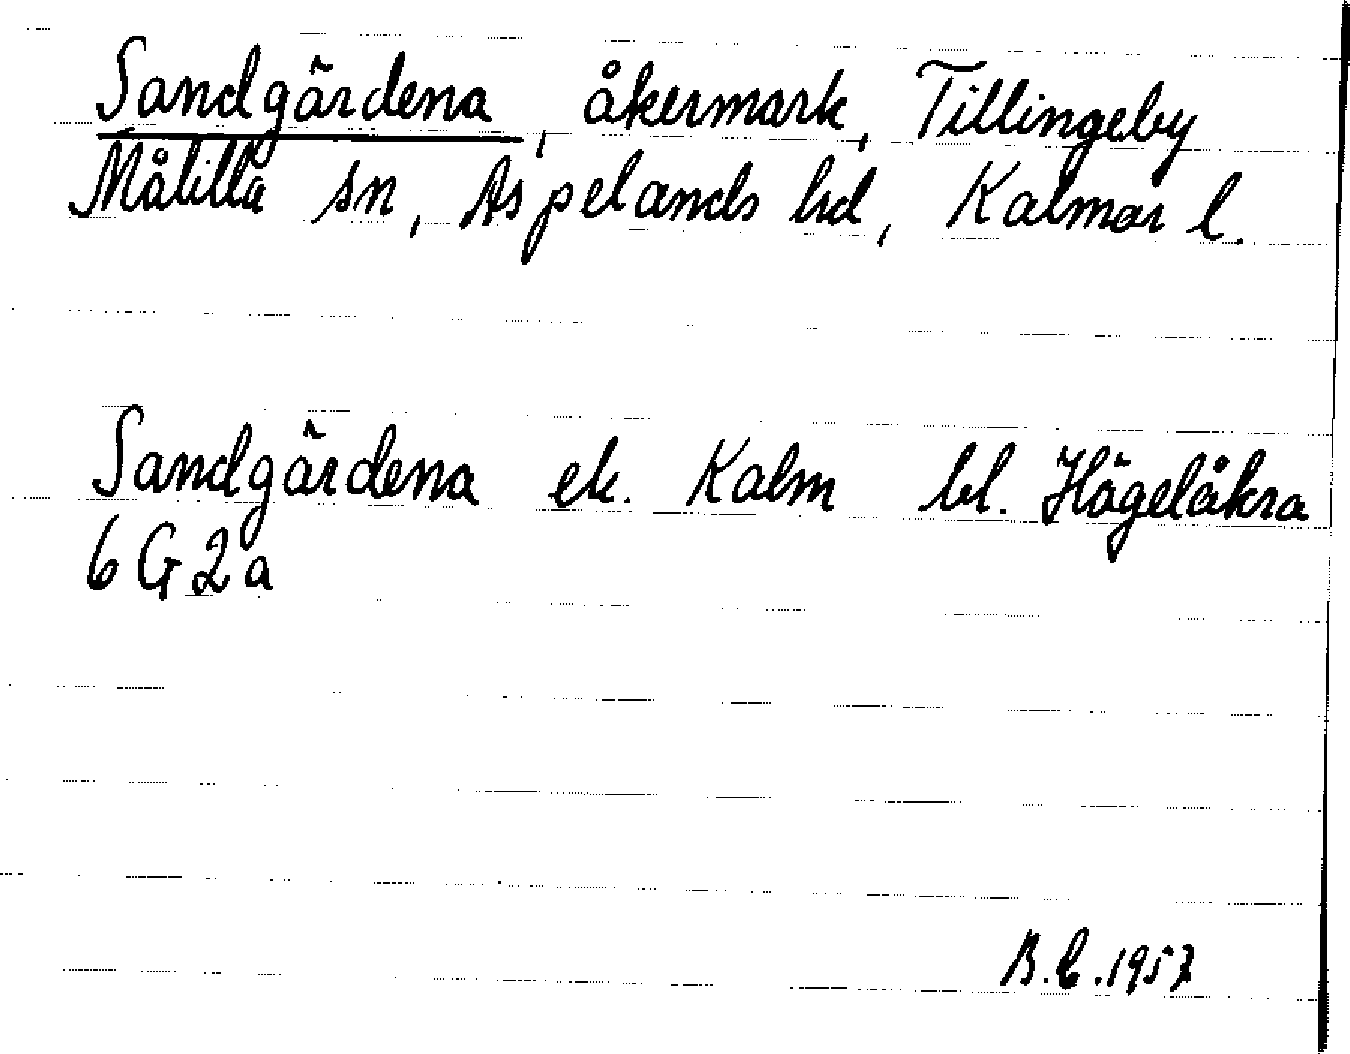 Sandgärdena, åkermark, Tillingeby
Målilla sn, Aspelands hd, Kalmar l.
Sandgärdena ek. Kalm bl. Högelåkra
6 G 2 a
B.E.1957